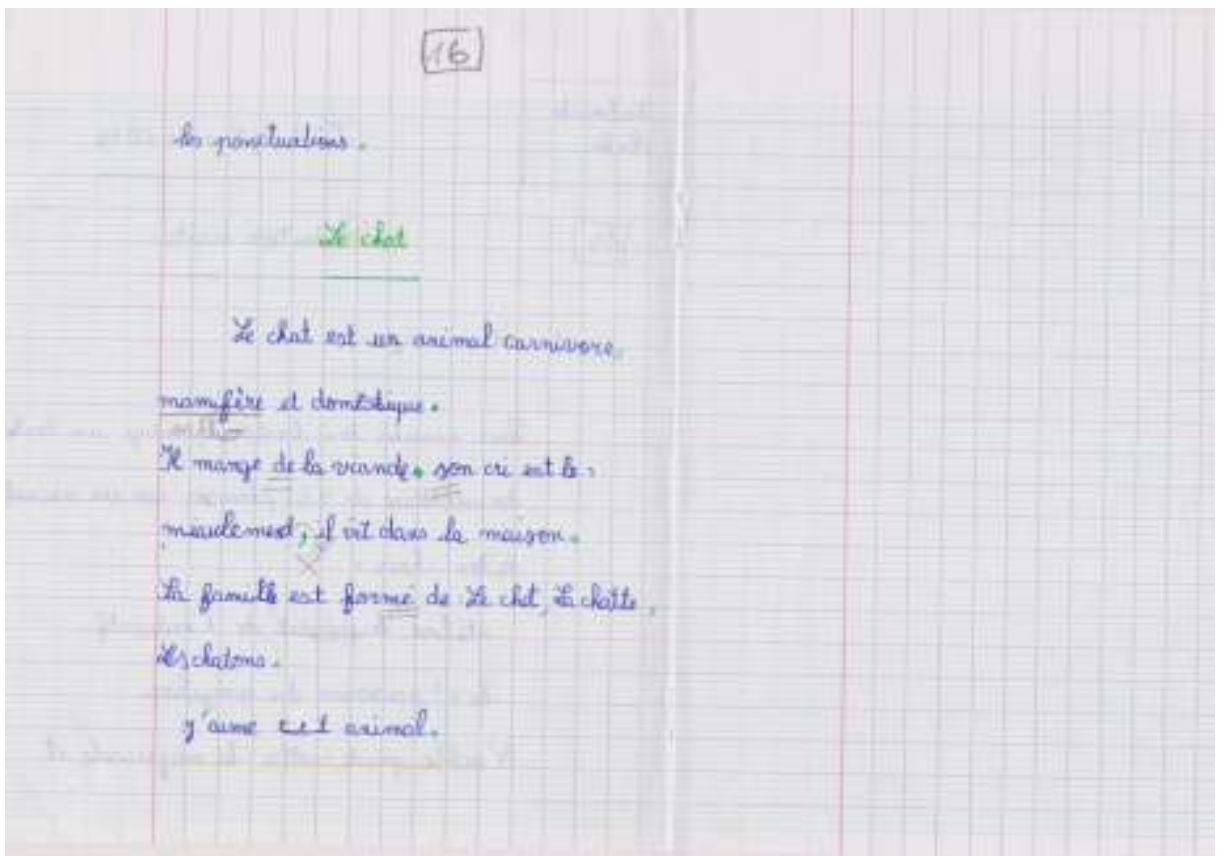 16
les ponctuations.
Le chat
Le chat est un animal carnivore,
mamifère et doméstique.
Il mange de la viande. son cri est le
miaulement, il vit dans la maison.
La famille est formé de Le chat, La chatte,
Les chatons.
j'aime cet animal.